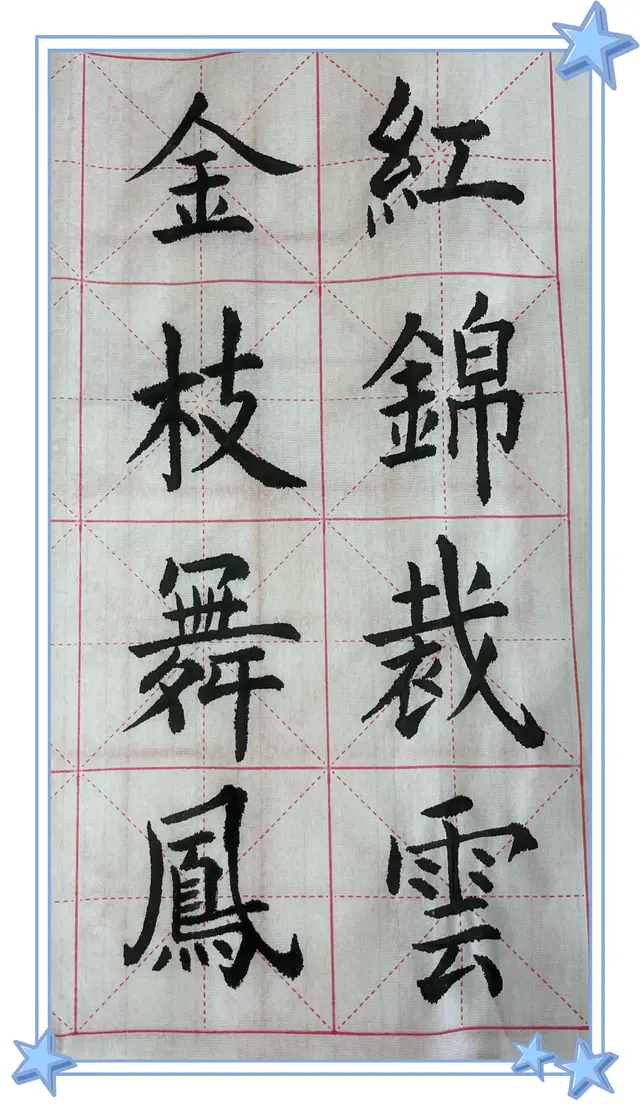 紅錦裁雲
金枝舞鳳